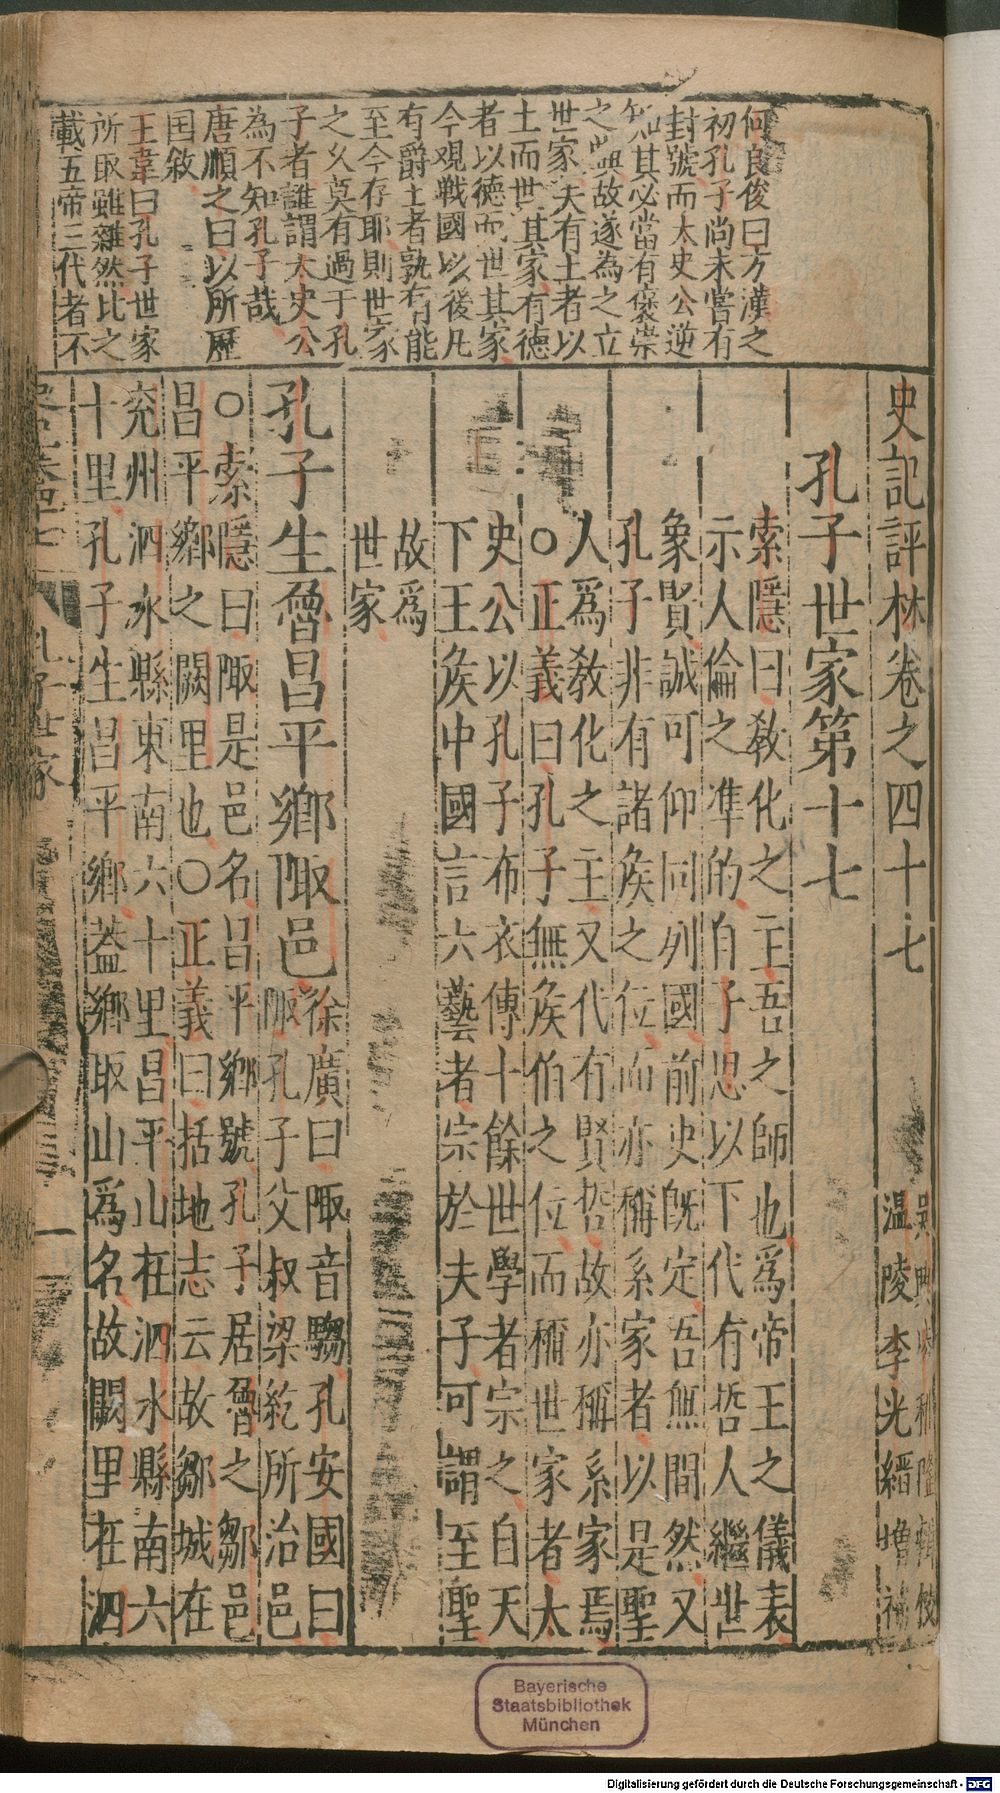 何良俊曰方漢之
初孔子尚未嘗有
封號而太史公逆
知其必當有褒崇
之典故遂為之立
世家夫有土者以
土而世其家有德
者以德而世其家
今觀戰國以後凡
有爵土者孰有能
至今存耶則世家
之久莫有過于孔
子者誰謂太史公
為不知孔子哉
唐順之曰以所歷
国敘
王韋曰孔子世家
所取雖雜然比之
載五帝三代者不
史記評林卷之四十七
吳興凌稚隆輯校
温陵李光縉增補
孔子世家第十七
索隱曰敎化之主吾之師也爲帝王之儀表
示人倫之凖的自子思以下代有哲人繼世
象賢誠可仰同列國前史旣定吾無間然又
孔子非有諸矦之位而亦稱系家者以是聖
人爲敎化之主又代有賢哲故亦稱系家焉
○正義曰孔子無矦伯之位而稱世家者太
史公以孔子布衣傳十餘世學者宗之自天
下王矦中國言六藝者宗於夫子可謂至聖
故爲
世家
孔子生魯昌平鄉陬邑
徐廣曰陬音騶孔安國曰
陬孔子父叔梁紇所治邑
○索隱曰陬是邑名昌平鄉號孔子居魯之鄒邑
昌平鄉之闕里也○正義曰括地志云故鄒城在
兖州泗水縣東南六十里昌平山在泗水縣南六
十里孔子生昌平鄉葢鄉取山爲名故闕里在泗
孔子世家
一
Bayerische
Staatsbibliothek
München
Digitalisierung gefördert durch die Deutsche Forschungsgemeinschaft - DFG